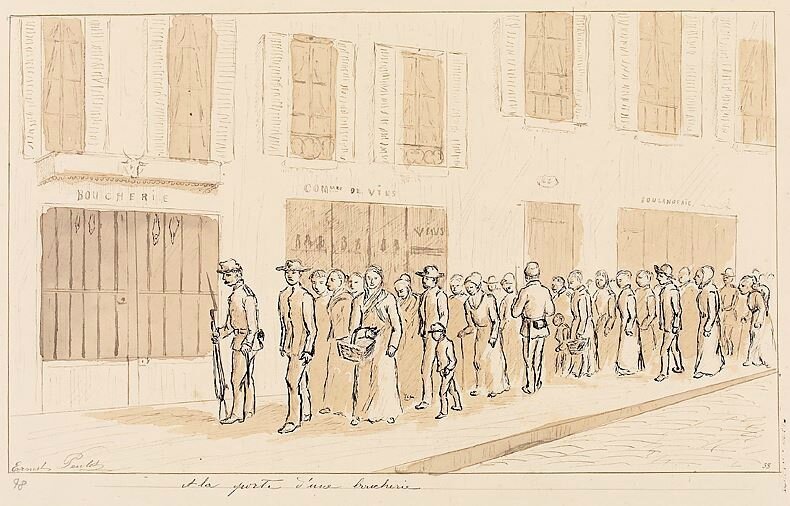 BOUCHERIE
COMMCE DE VINS
VINS
BOULANGERIE
Ernest
98
A la porte d'une boucherie
38